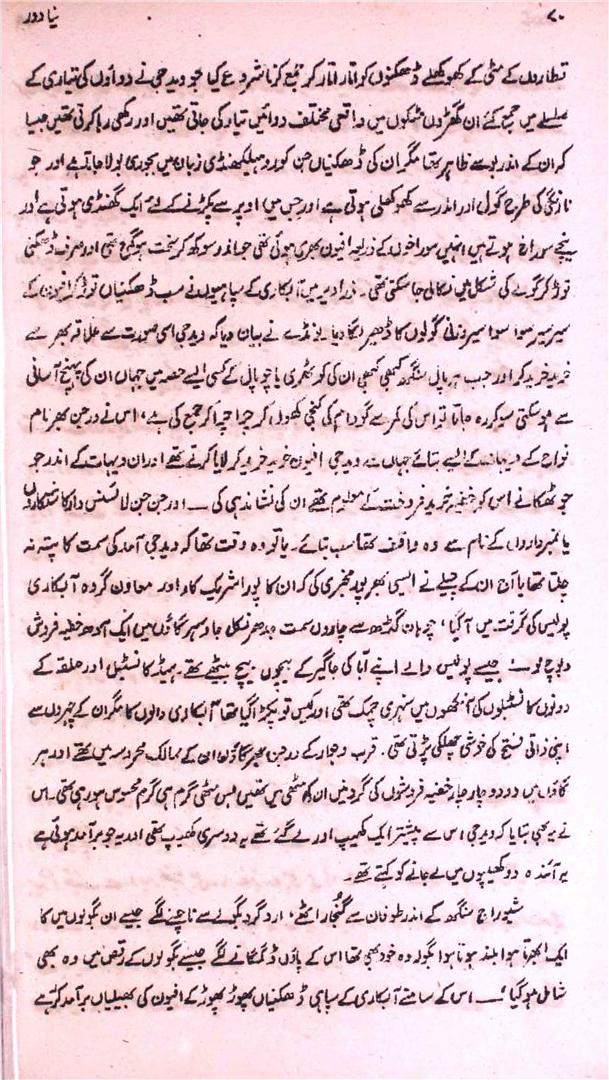 ۷۰ نیا دور
قطاروں کے مٹی کے کھوکھلے ڈھکنوں کو اتار اتار کر جمع کرنا شروع کیا جو ویدجی نے دواؤں کی تیاری کے
سلسلے میں جمع کئے ان گھڑوں مٹکوں میں واقعی مختلف دوائیں تیار کی جاتی تھیں اور رکھی رہا کرتی تھیں جیسا
کہ ان کے اندر بو سے ظاہر تھا مگر ان کی ڈھکنیاں جن کو روہیلکھنڈی زبان میں بولا جاتا ہے اور جو
نارنگی کی طرح گول اور اندر سے کھوکھلی ہوتی ہے اور جس میں اوپر سے پکڑنے کے لئے ایک گھنڈی ہوتی ہے اور
نیچے سوراخ ہوتے ہیں انہیں سوراخوں کے ذریعہ افیون بھری ہوئی تھی جو اندر سوکھ کر سخت ہوگئی تھی اور صرف ڈھکنی
توڑ کر گولے کی شکل میں نکالی جاسکتی تھی۔ ذرا دیر میں آبکاری کے سپاہیوں نے سب ڈھکنیاں توڑ کر افیون کے
سیر سیر سوا سوا سیر وزنی گولوں کا ڈھیر لگا دیا لونڈے نے بیان دیا کہ ویدجی اسی صورت سے علاقہ بھر سے
خرید خرید کر اور جب ہرپال سنگھ کبھی کبھی ان کی کوٹھری یا چوپال کے کسی ایسے حصہ میں جہاں ان کی پہنچ آسانی
سے ہوسکتی سوکر رہ جاتا تو اس کی کمر سے گودام کی کنجی کھول کر چرا چرا کر جمع کی ہے، اس نے درجن بھر نام
نواح کے دیہات کے ایسے بتائے جہاں سے ویدجی افیون خرید خرید کر لایا کرتے تھے اور ان دیہات کے اندر جو
جو ٹھکانے اس کو خفیہ خرید فروخت کے معلوم تھے ان کی نشاندہی کی ۔ اور جن جن لائسنس دار کاشتکاروں
یا نمبرداروں کے نام سے وہ واقف تھا سب بتائے۔ یا تو وہ وقت تھا کہ ویدجی آمد کی سمت کا پتہ نہ
چلتا تھا یا آج ان کے چیلے نے ایسی بھرپور مخبری کی کہ ان کا پورا شریک کار اور معاون گروہ آبکاری
پولیس کی گرفت میں آگیا، چوہان گڈھ سے چاروں سمت جدھر نکل جاؤ ہر گاؤں میں ایک آدھ خفیہ فروش
دبوچ لو جیسے پولیس والے اپنے آبا کی جاگیر کے بیچوں بیچ بیٹھے تھے۔ ہیڈ کانسٹیبل اور حلقہ کے
دونوں کانسٹبلوں کی آنکھوں میں سنہری چمک تھی اور کیس تو پکڑا گیا تھا آبکاری والوں کا مگر ان کے چہروں سے
اپنی ذاتی فتح کی خوشی چھلکی پڑتی تھی۔ قرب و جوار کے درجن بھر گاؤں ان کے ممالک محروسہ میں تھے اور ہر
گاؤں میں دو دو چار چار خفیہ فروشوں کی گردنیں ان کی مٹھی میں تھیں بس مٹھی گرم ہی گرم محسوس ہو رہی تھی۔ اس
نے یہ بھی بتایا کہ ویدجی اس سے پیشتر ایک کھیپ اور لے گئے تھے یہ دوسری کھیپ تھی اور یہ جو برآمد ہوئی ہے
یہ آئندہ دو کھیپوں میں لے جانے کو کہتے تھے۔
شیوراج سنگھ کے اندر طوفان سے گنجار اٹھے، ارد گرد بگولے سے ناچنے لگے جیسے ان بگولوں میں کا
ایک ابھرتا ہوا بلند ہوتا ہوا بگولہ وہ خود بھی تھا اس کے پاؤں ڈگمگانے لگے جیسے بگولوں کے رقص میں وہ بھی
شامل ہوگیا ، ۔ اس کے سامنے آبکاری کے سپاہی ڈھکنیاں پھوڑ پھوڑ کے افیون کی بھیلیاں برآمد کر رہے